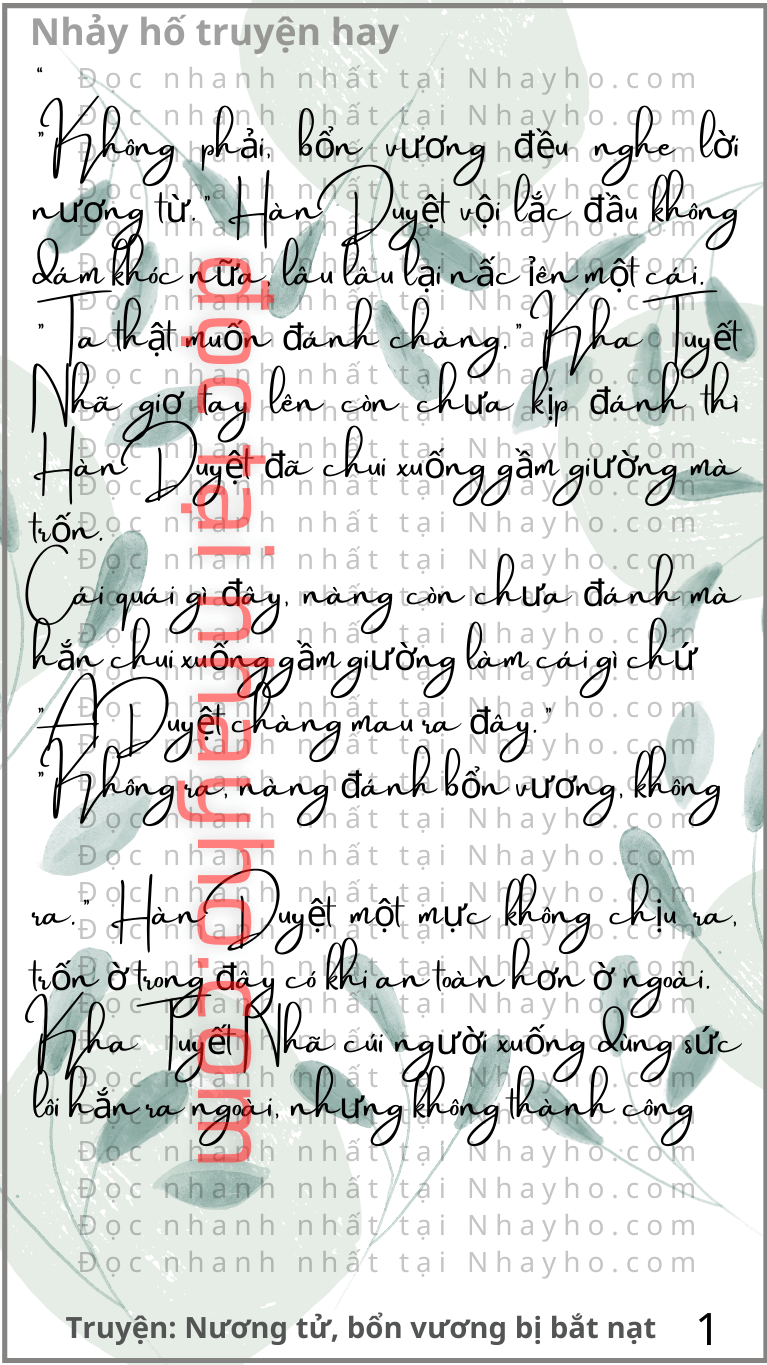 Nhảy hố truyện hay
“
"Không phải, bổn vương đều nghe lời
nương từ." Hàn Duyệt vội lắc đầu không
dám khóc nữa, lâu lâu lại nấc lên một cái.
"Ta thật muốn đánh chàng." Kha Tuyết
Nhã giơ tay lên còn chưa kịp đánh thì
Hàn Duyệt đã chui xuống gầm giường mà
trốn.
Cái quái gì đây, nàng còn chưa đánh mà
hắn chui xuống gầm giường làm cái gì chứ
"A Duyệt chàng mau ra đây."
"Không ra, nàng đánh bổn vương, không
ra." Hàn Duyệt một mực không chịu ra,
trốn ở trong đây có khi an toàn hơn ở ngoài.
Kha Tuyết Nhã cúi người xuống dùng sức
lôi hắn ra ngoài, nhưng không thành công
đọc tại nhayho.com
Đọc nhanh nhất tại Nhayho.com
Đọc nhanh nhất tại Nhayho.com
Đọc nhanh nhất tại Nhayho.com
Đọc nhanh nhất tại Nhayho.com
Truyện: Nương tử, bổn vương bị bắt nạt
1